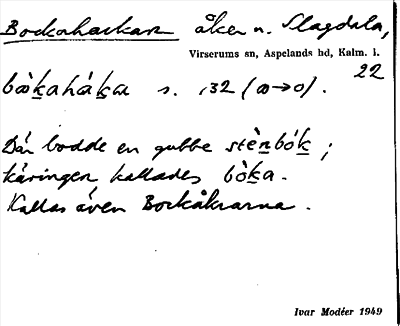 Bockahackan åker n. Slagdala,
Virserums sn, Aspelands hd, Kalm. l.
22
bòkahàka s. 132 (ɷ→o).
Där bodde en gubbe stènbók ;
käringen kallades bòka.
Kallas även Bockåkrarna.
Ivar Modéer 1949